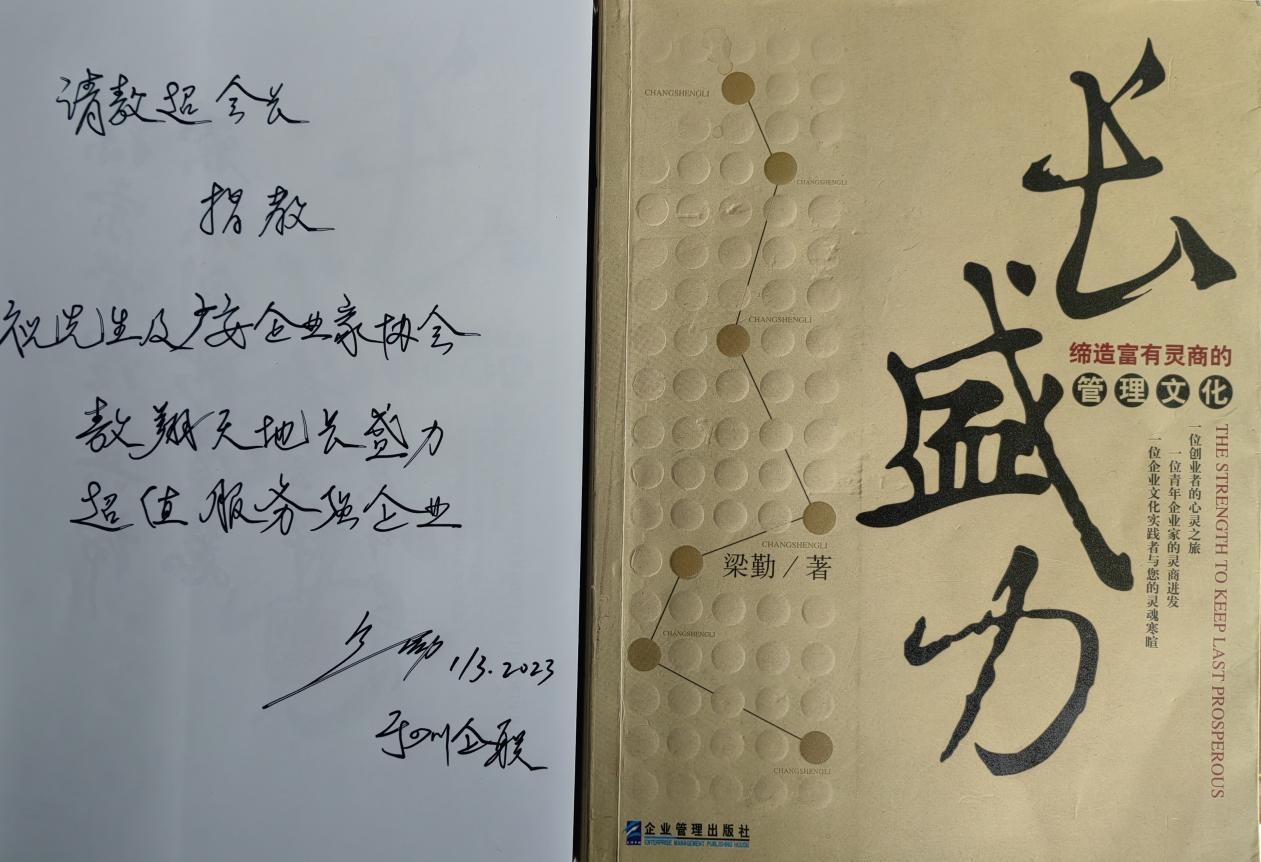 请敖超会长
指教
祝先生及广安企业家协会
敖翔天地长盛力
超值服务强企业
梁勤 1/3.2023
于四川企联
长盛力
缔造富有灵商的
管理文化
THE STRENGTH TO KEEP LAST PROSPEROUS
一位创业者的心灵之旅
一位青年企业家的灵商迸发
一位企业文化实践者与您的灵魂寒暄
CHANGSHENGLI
CHANGSHENGLI
CHANGSHENGLI
CHANGSHENGLI
梁勤/著
CHANGSHENGLI
CHANGSHENGLI
企业管理出版社
ENTERPRISE MANAGEMENT PUBLISHING HOUSE